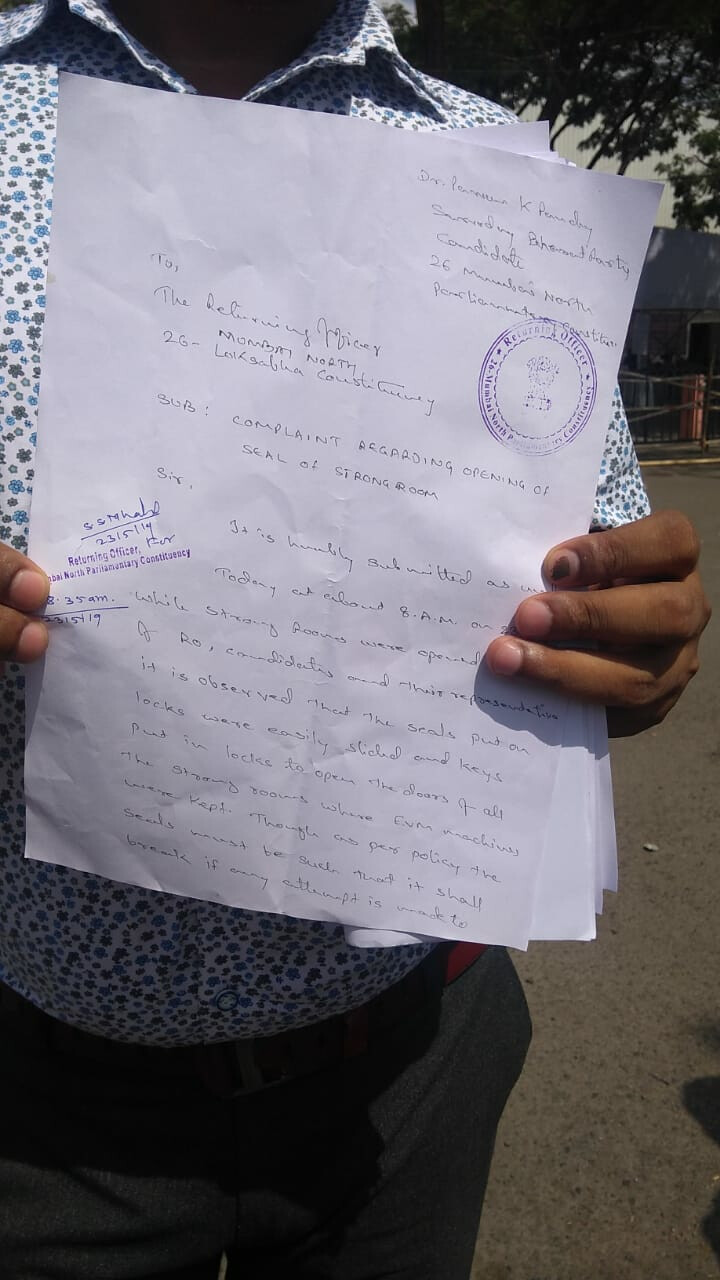 Dr. K Pandey
Sarvoday Bharat Party
Candidate
26 Mumbai North
Parliamentary Constituen
To,
The Returning Officer
26- MUMBAI NORTH
Loksabha Constituency
Returning Officer
26-Mumbai North Parliamentary Constituency
SUB: COMPLAINT REGARDING OPENING OF
SEAL OF STRONGROOM
Sir,
23/5/19
For
Returning Officer,
bai North Parliamentary Constituency
8.35am.
23/5/19
It is humbly submitted as
Today at about 8.A.M. on
while strong Rooms were opened
of RO, candidates and their representative
it is observed that the seals put on
locks were easily slided and keys
put in locks to open the doors of all
the strong rooms where EVM machines
were kept. Though as per policy the
seals must be such that it shall
break if any attempt is made to